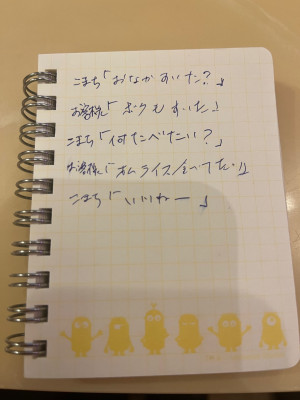 こまち「おなかすいた?」
お客様「ボクもすいた!
こまち「何たべたい?」
お客様「オムライスたべたい」
こまち「いいねー」